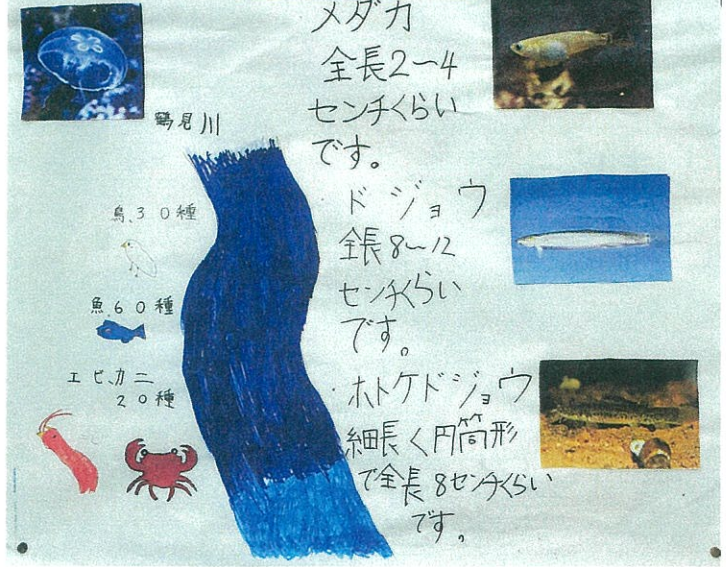 鶴見川
鳥、30種
魚、60種
エビ、カニ
20種
メダカ
全長2〜4
センチくらい
です。
・ドジョウ
全長8〜12
センチくらい
です。
・ホトケドジョウ
細長く円筒形
で全長8センチくらい
です。